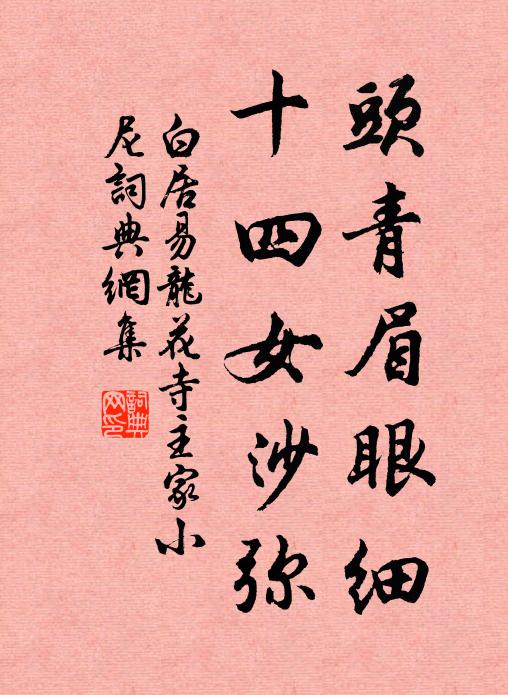 頭青眉眼細
十四女沙弥
白居易龍花寺主家小
尼詞典網集
詞典
网印